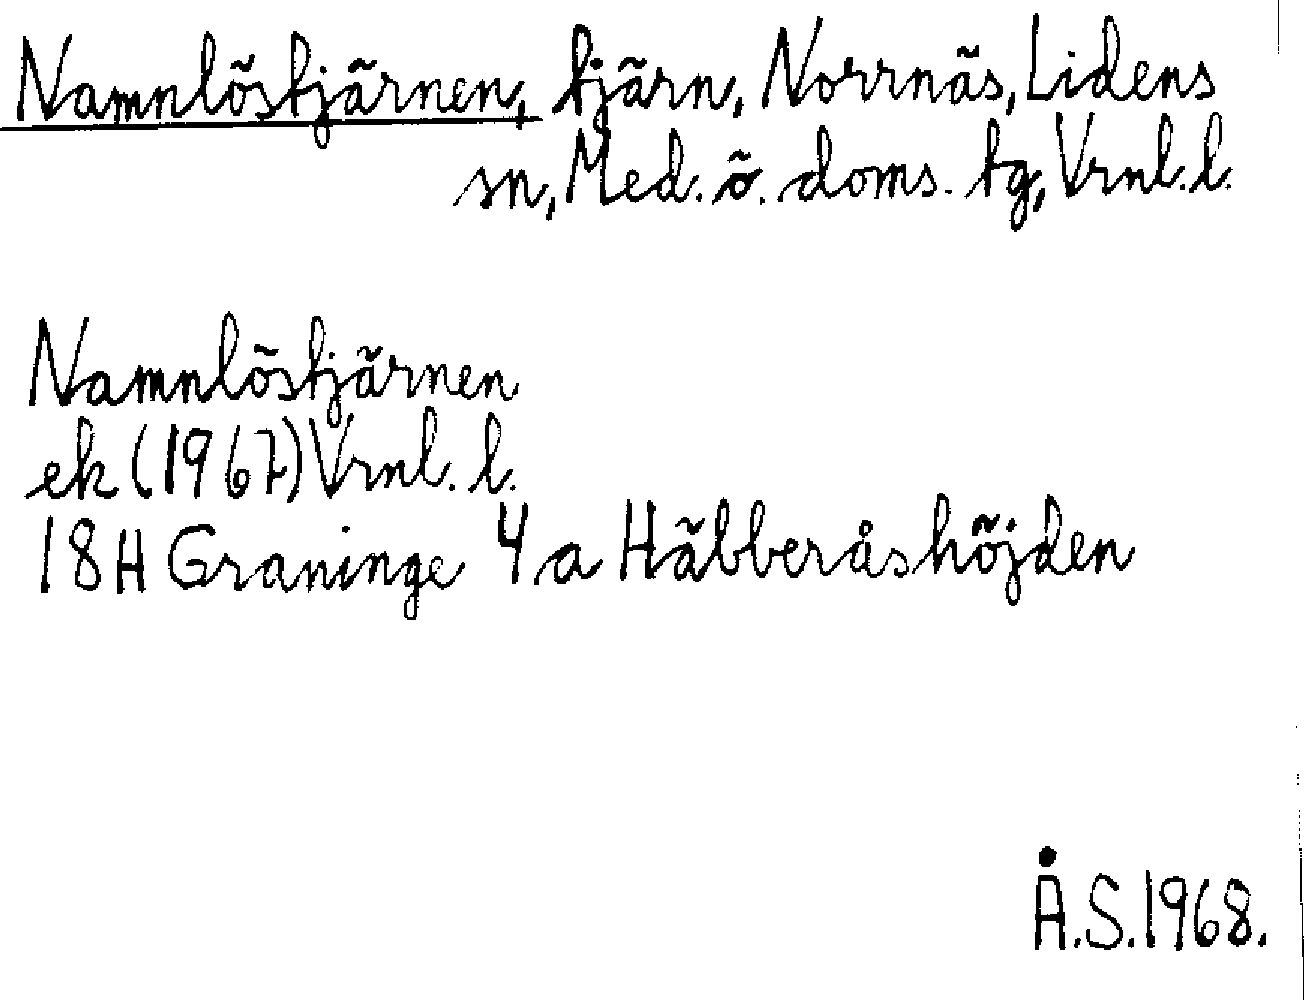 Namnlöstjärnen, tjärn, Norrnäs, Lidens
sn, Med. ö. doms. tg, Vrnl. l.
Namnlöstjärnen
ek (1967) Vrnl. l.
18H Graninge 4 a Häbberåshöjden
Å.S. 1968.